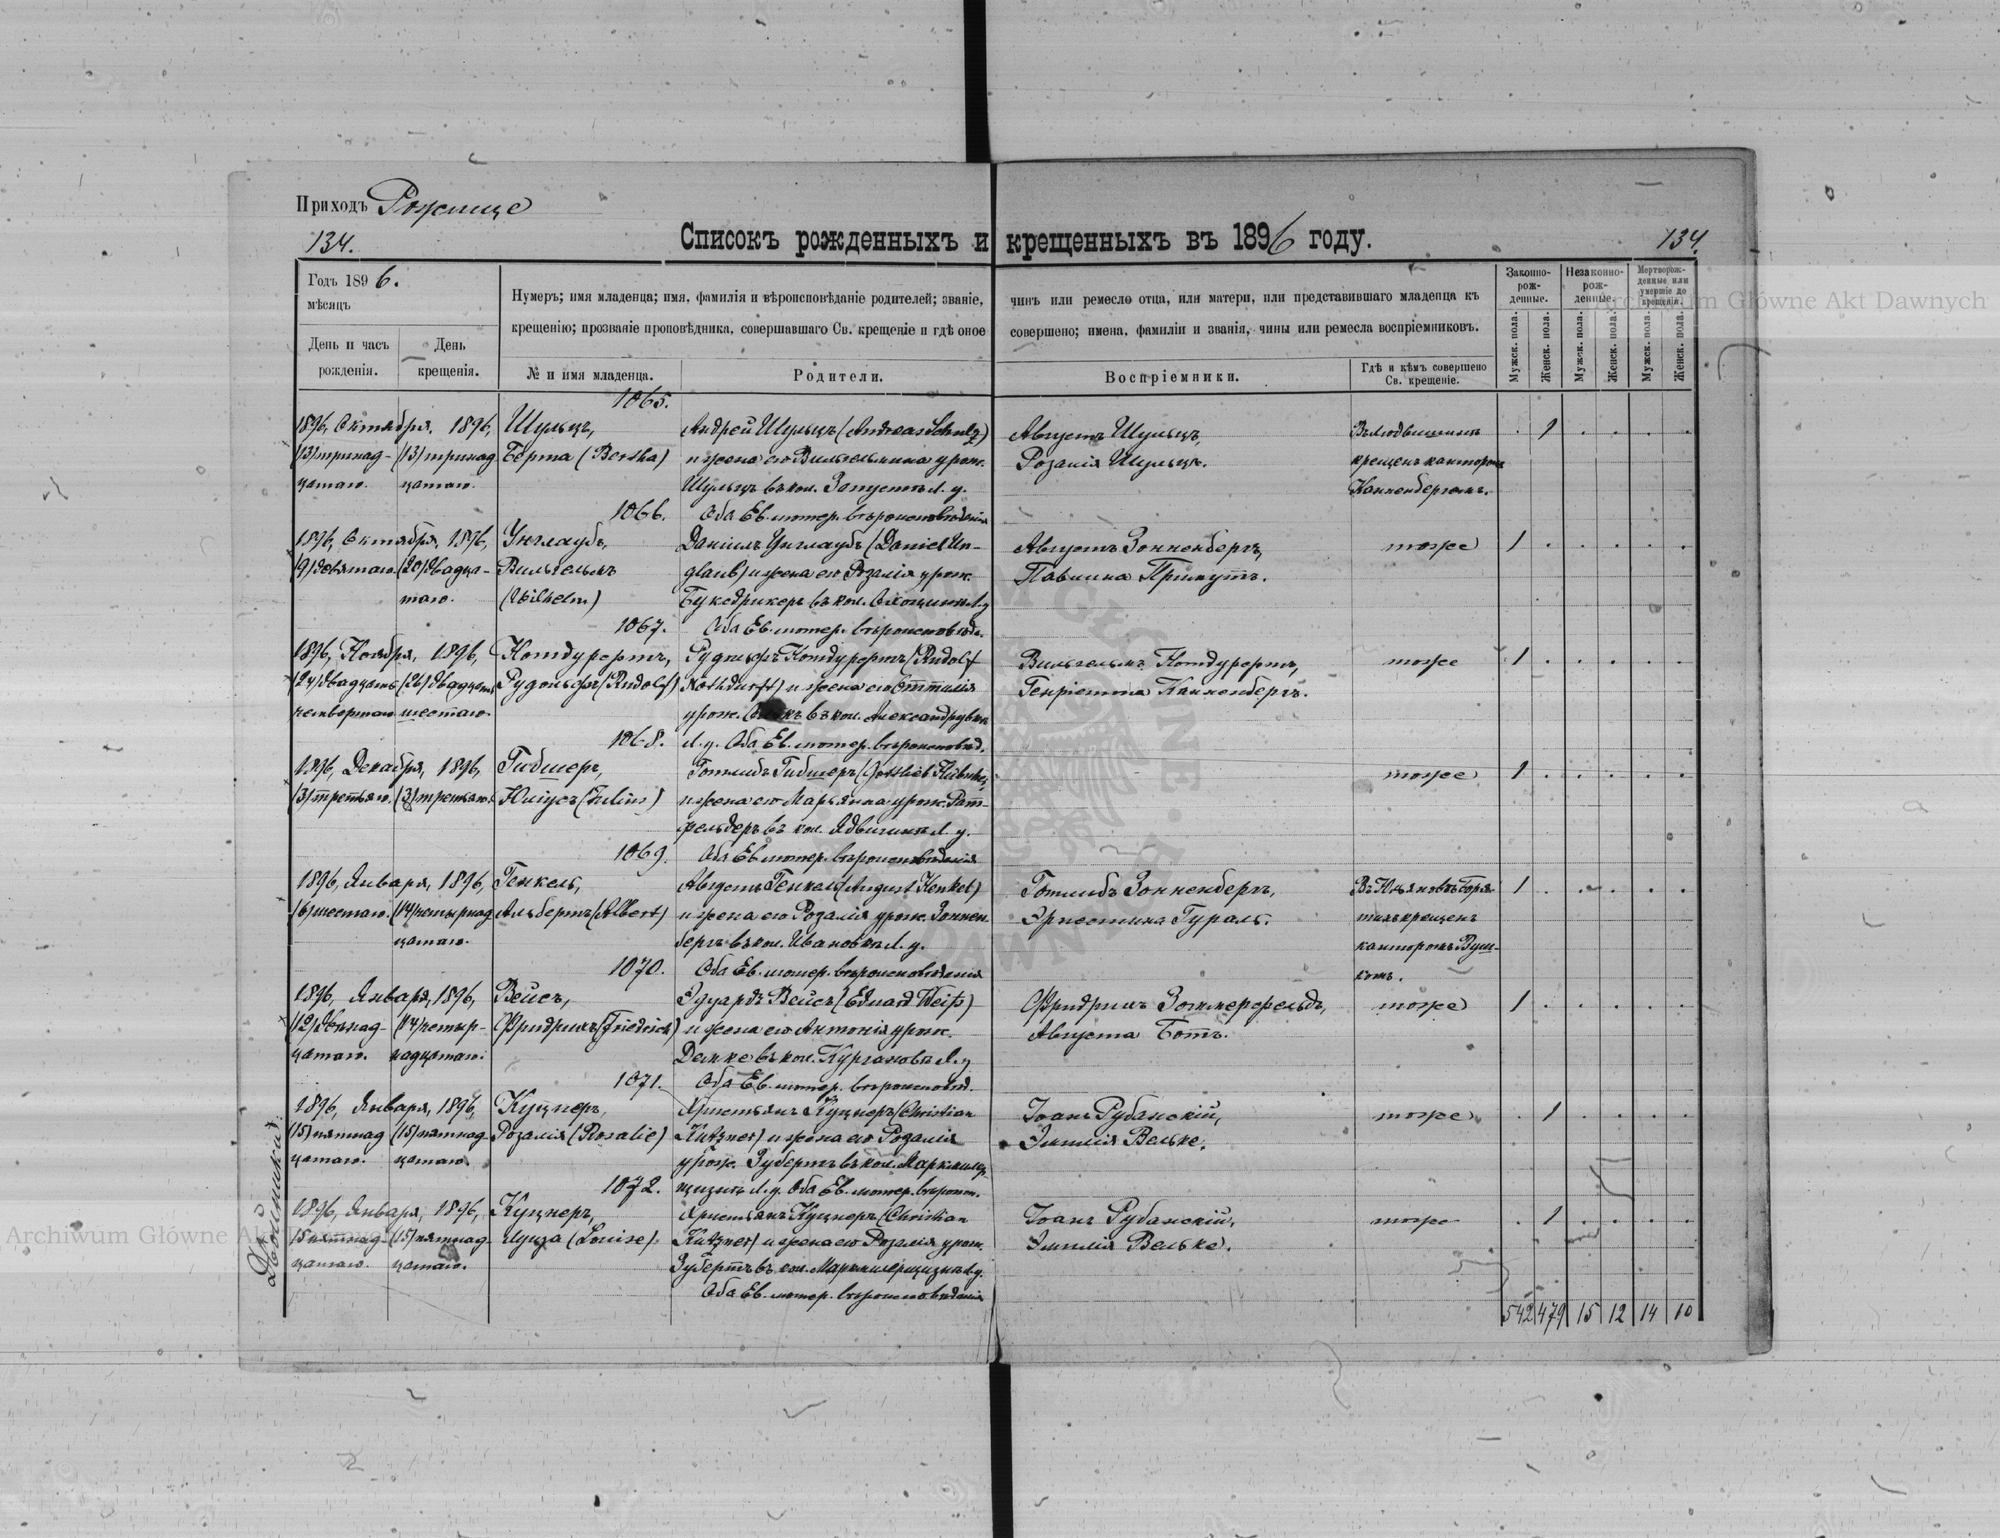 Приходъ Рожище
134.
Списокъ рожденныхъ и крещенныхъ въ 1896 году.
134.
Годъ 1896.
мѣсяцъ
День и часъ рожденія.
День крещенія.
Нумеръ; имя младенца; имя, фамилія и вѣроисповѣданіе родителей; званіе, чинъ или ремесло отца, или матери, или представившаго младенца къ
крещенію; прозваніе проповѣдника, совершавшаго Св. крещеніе и гдѣ оное совершено; имена, фамиліи и званія, чины или ремесла воспріемниковъ.
№ и имя младенца.
Родители.
Воспріемники.
Гдѣ и кѣмъ совершено Св. крещеніе.
Законно-рож-денные.
Незаконно-рож-денные.
Мертворож-денные или умершіе до крещенія.
Мужск. пола.
Женск. пола.
Мужск. пола.
Женск. пола.
Мужск. пола.
Женск. пола.
1065.
1896, Октября, 1896, Шульцъ, Андрей Шульцъ (Andreas Schulz) Августъ Шульцъ, 1
(13) тринад- (13) тринад Берта (Bertha) и жена его Вильгельмина урож. Розалія Шульцъ. крещенъ канторомъ
цатаго. цатаго. Шульцъ въ кол. Л. у. Канненбергомъ.
1066. Оба Ев. лютер. вѣроисповѣданія
1896, Октября, 1896, Унглаубъ, Даніилъ Унглаубъ (Daniel Un- Августъ Зонненбергъ, тоже 1
(9) девятаго (20) двадца- Вильгельмъ glaub) и жена его Розалія урож. Павлина
таго. (Wilhelm) Букедрикеръ въ кол. Л. у
1067. Оба Ев. лютер. вѣроисповѣд.
1896, Ноября, 1896, Нотдурфтъ, Рудольфъ Нотдурфтъ (Rudolf Вильгельмъ Нотдурфтъ, тоже 1
(24) двадцать (26) двадцать Рудольфъ (Rudolf) Nothdurft) и жена его Оттилія Генріетта Канненбергъ.
четвертаго шестаго. урож. въ кол. Александровка
1068. Л. у. Оба Ев. лютер. вѣроисповѣд.
1896, Декабря, 1896, Гибнеръ, Готлибъ Гибнеръ (Gottlieb Hübner) тоже 1
(3) третьяго. (3) третьяго. Юліусъ (Julius) и жена его Марьянна урож. Рат-
фельдеръ въ кол. Ядвигинъ Л. у.
1069. Оба Ев. лютер. вѣроисповѣданія
1896, Января, 1896, Генкель, Августъ Генкель (August Henkel) Готлибъ Зонненбергъ, 1
(6) шестаго. (14) четырнад Альбертъ (Albert) и жена его Розалія урож. Зоннен Эрнестина Гураль. крещенъ
цатаго. бергъ въ кол. Ивановка Л. у. канторомъ
1070. Оба Ев. лютер. вѣроисповѣданія
1896, Января, 1896, Вейсъ, Эдуардъ Вейсъ (Eduard Weiß) Фридрихъ Зоммерфельдъ, тоже 1
(12) двѣнад- (14) четыр- Фридрихъ (Friedrich) и жена его Антонія урож. Августа Ботъ.
цатаго. надцатаго. въ кол. Курганова Л. у
1071. Оба Ев. лютер. вѣроисповѣд.
1896, Января, 1896, Куцнеръ, Христьянъ Куцнеръ (Christian Іоанъ Рубанскій, тоже 1
(15) пятнад (15) пятнад- Розалія (Rosalie) Kutzner) и жена его Розалія Эмилія Вельке.
цатаго. цатаго. урож. Зубертъ въ кол.
1072. Л. у. Оба Ев. лютер. вѣроисп.
Двойники:
1896, Января, 1896, Куцнеръ, Христьянъ Куцнеръ (Christian Іоанъ Рубанскій, тоже 1
15 пятнад- (15) пятнад- Луиза (Louise). Kutzner) и жена его Розалія урож. Эмилія Вельке.
цатаго. цатаго. Зубертъ въ кол. Л. у.
Оба Ев. лютер. вѣроисповѣданія
542 479 15 12 14 10
Archiwum Główne Akt Dawnych
Archiwum Główne Akt Dawnych